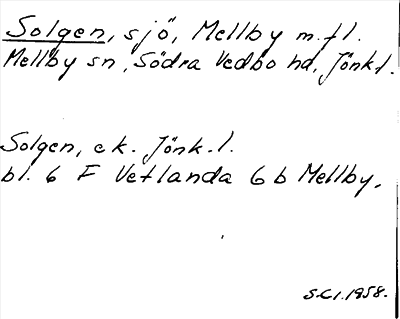 Solgen, sjö, Mellby m.fl.
Mellby sn, Södra Vedbo hd, Jönk l.
Solgen, ek. Jönk. l.
bl. 6 F Vetlanda 6 b Mellby.
S.C.I. 1958.